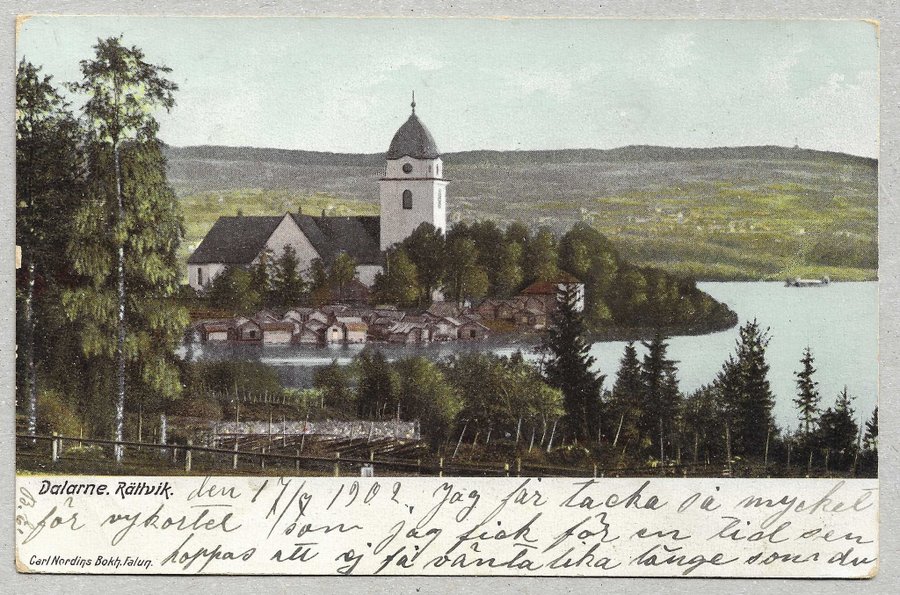 Dalarne. Rättvik. den 17/7 1902. Jag får tacka så mycket
för vykortet som jag fick för en tid sen
Carl Nordins Bokh. Falun. hoppas att ej få vänta lika länge som du